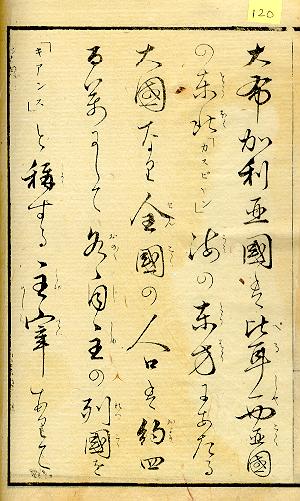 120
大布加利亜國は比耳西亜國
の東北「カスピーン」海の東方にあたる
大國なり全國の人口は約四
百萬にして各自主の列國を
「キアンス」と稱する主宰ありて